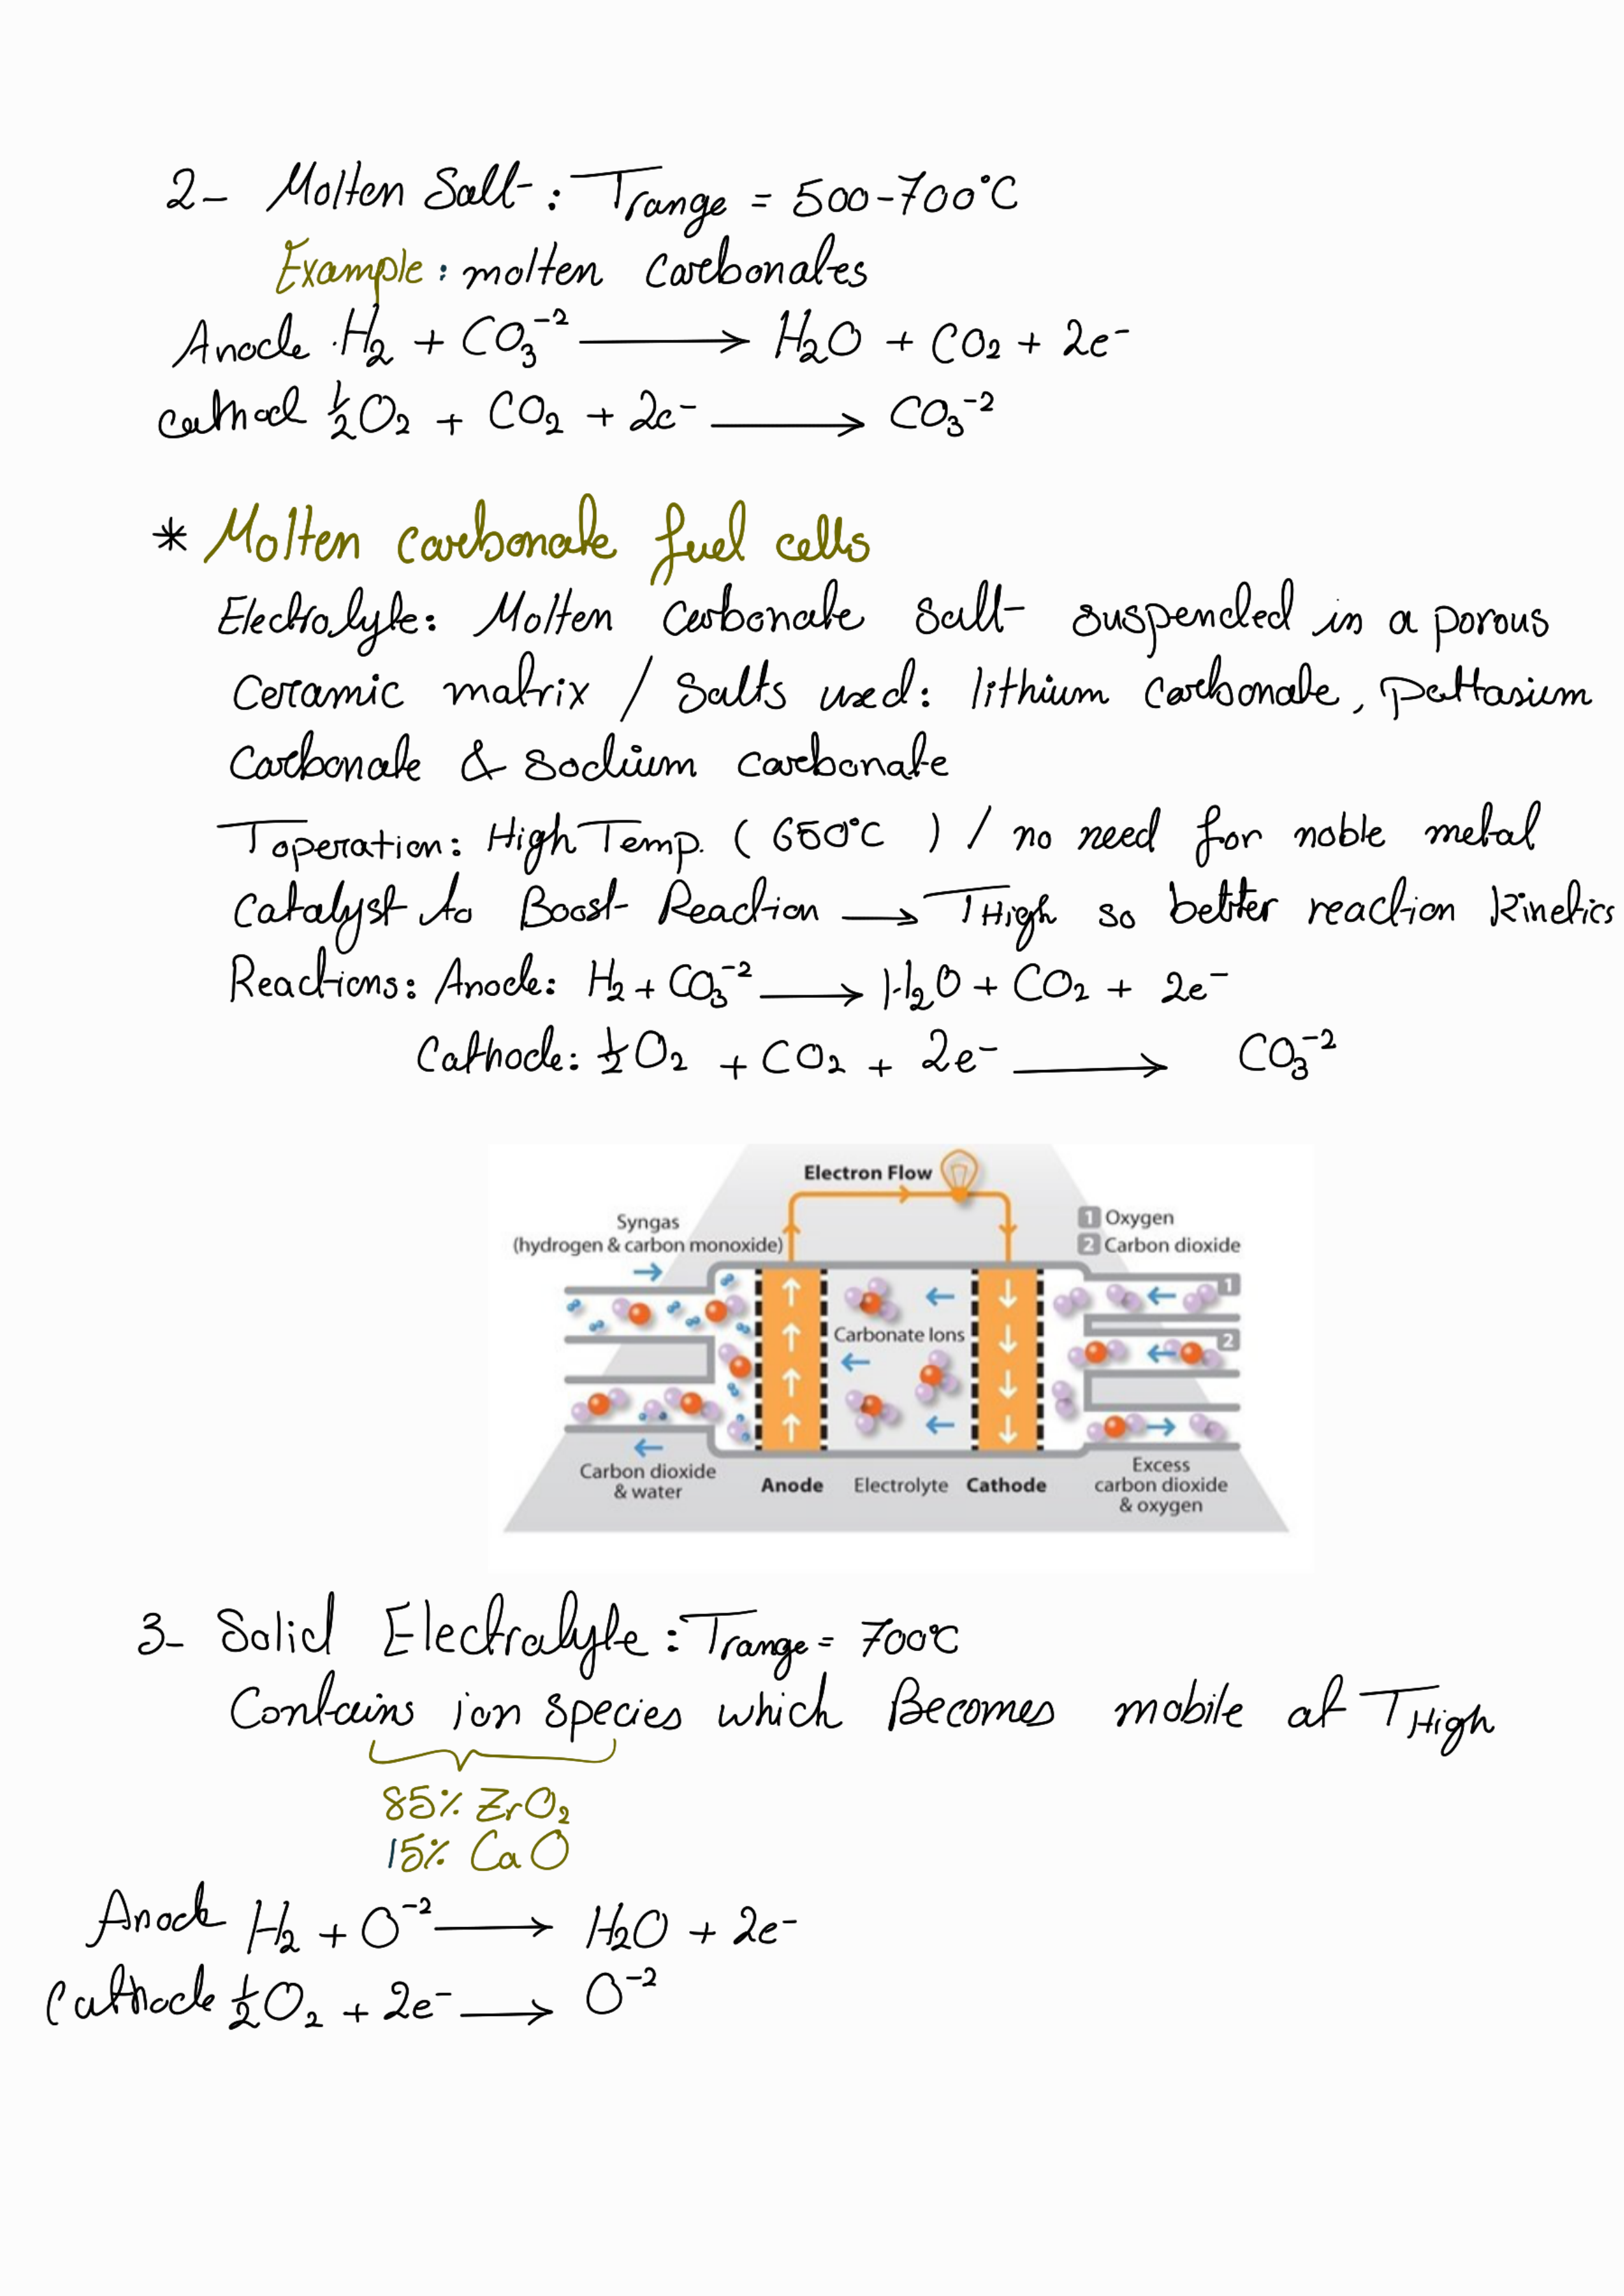 2- Molten Salt : Trange = 500-700°C
Example : molten Carbonates
Anode : H₂ + CO₃⁻² ⟶ H₂O + CO₂ + 2e⁻
Cathod ½O₂ + CO₂ + 2e⁻ ⟶ CO₃⁻²
* Molten carbonate fuel cells
Electrolyte: Molten Carbonate Salt suspended in a porous
Ceramic matrix / Salts used: lithium Carbonate, pottasium
Carbonate & Sodium carbonate
Toperation: High Temp. ( 650°C ) / no need for noble metal
Catalyst to Boost Reaction ⟶ THigh so better reaction kinetics
Reactions: Anode: H₂ + CO₃⁻² ⟶ H₂O + CO₂ + 2e⁻
Cathode: ½O₂ + CO₂ + 2e⁻ ⟶ CO₃⁻²
Electron Flow
Syngas
(hydrogen & carbon monoxide)
1 Oxygen
2 Carbon dioxide
1
Carbonate Ions
2
Carbon dioxide
& water
Anode
Electrolyte
Cathode
Excess
carbon dioxide
& oxygen
3- Solid Electrolyte : Trange = 700°C
Contains ion species which Becomes mobile at THigh
85% ZrO₂
15% CaO
Anode H₂ + O⁻² ⟶ H₂O + 2e⁻
Cathode ½O₂ + 2e⁻ ⟶ O⁻²